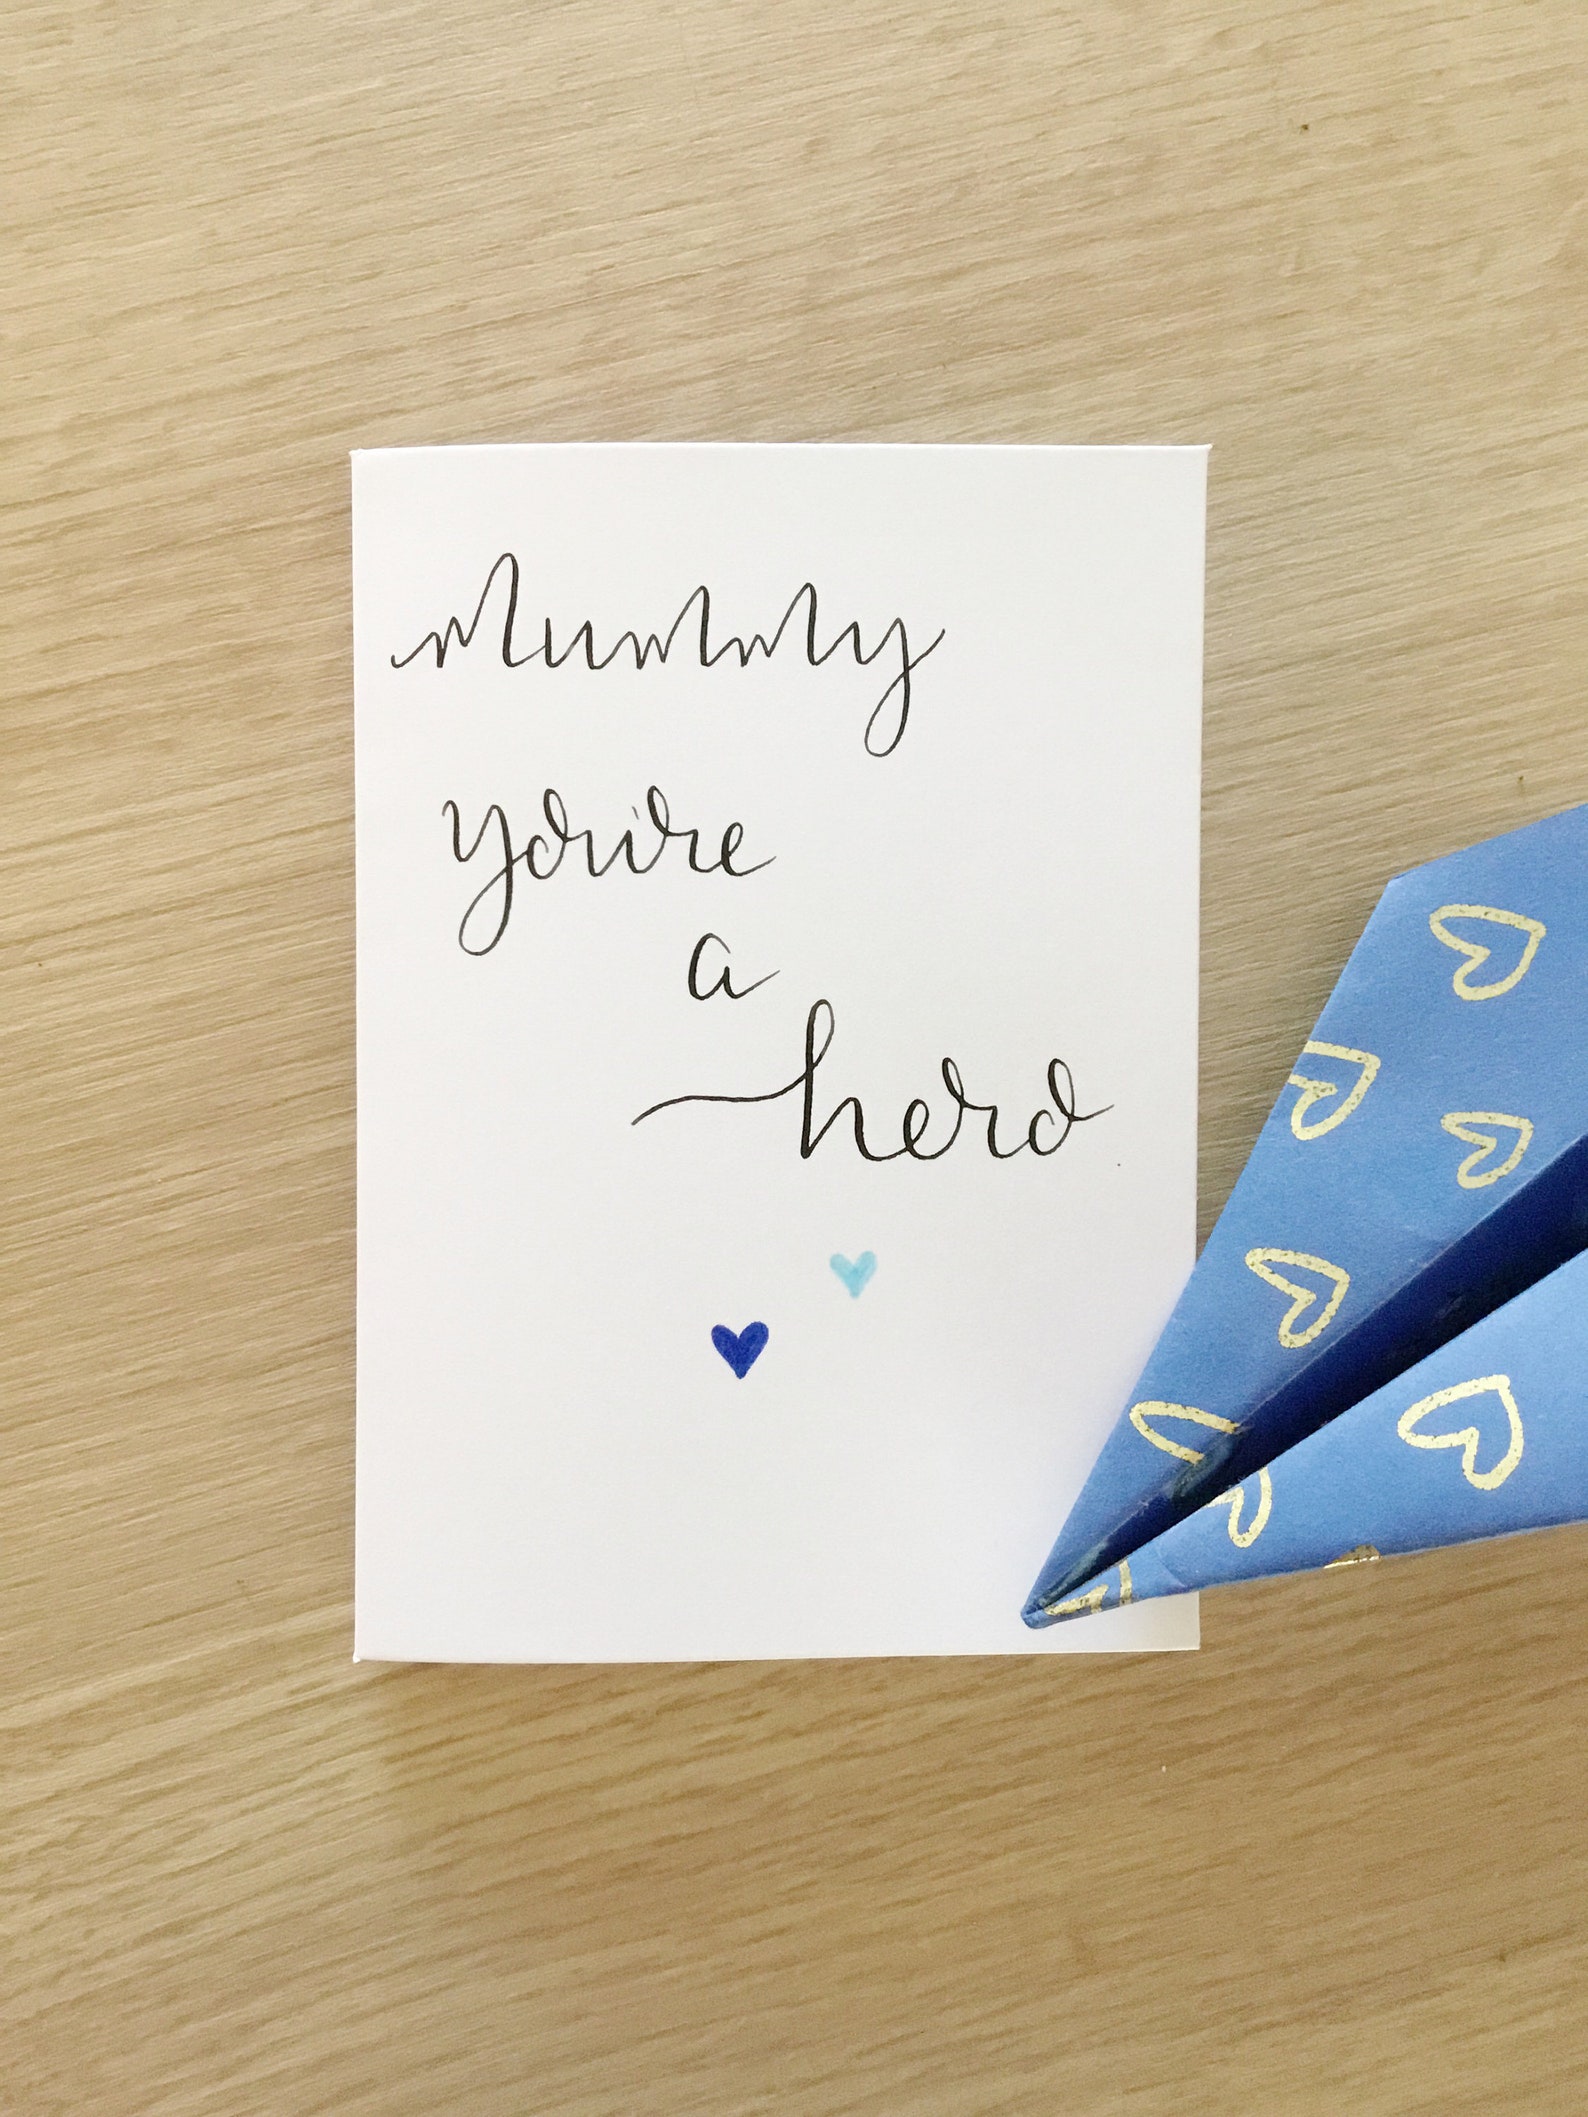 Mummy
you're
a
hero